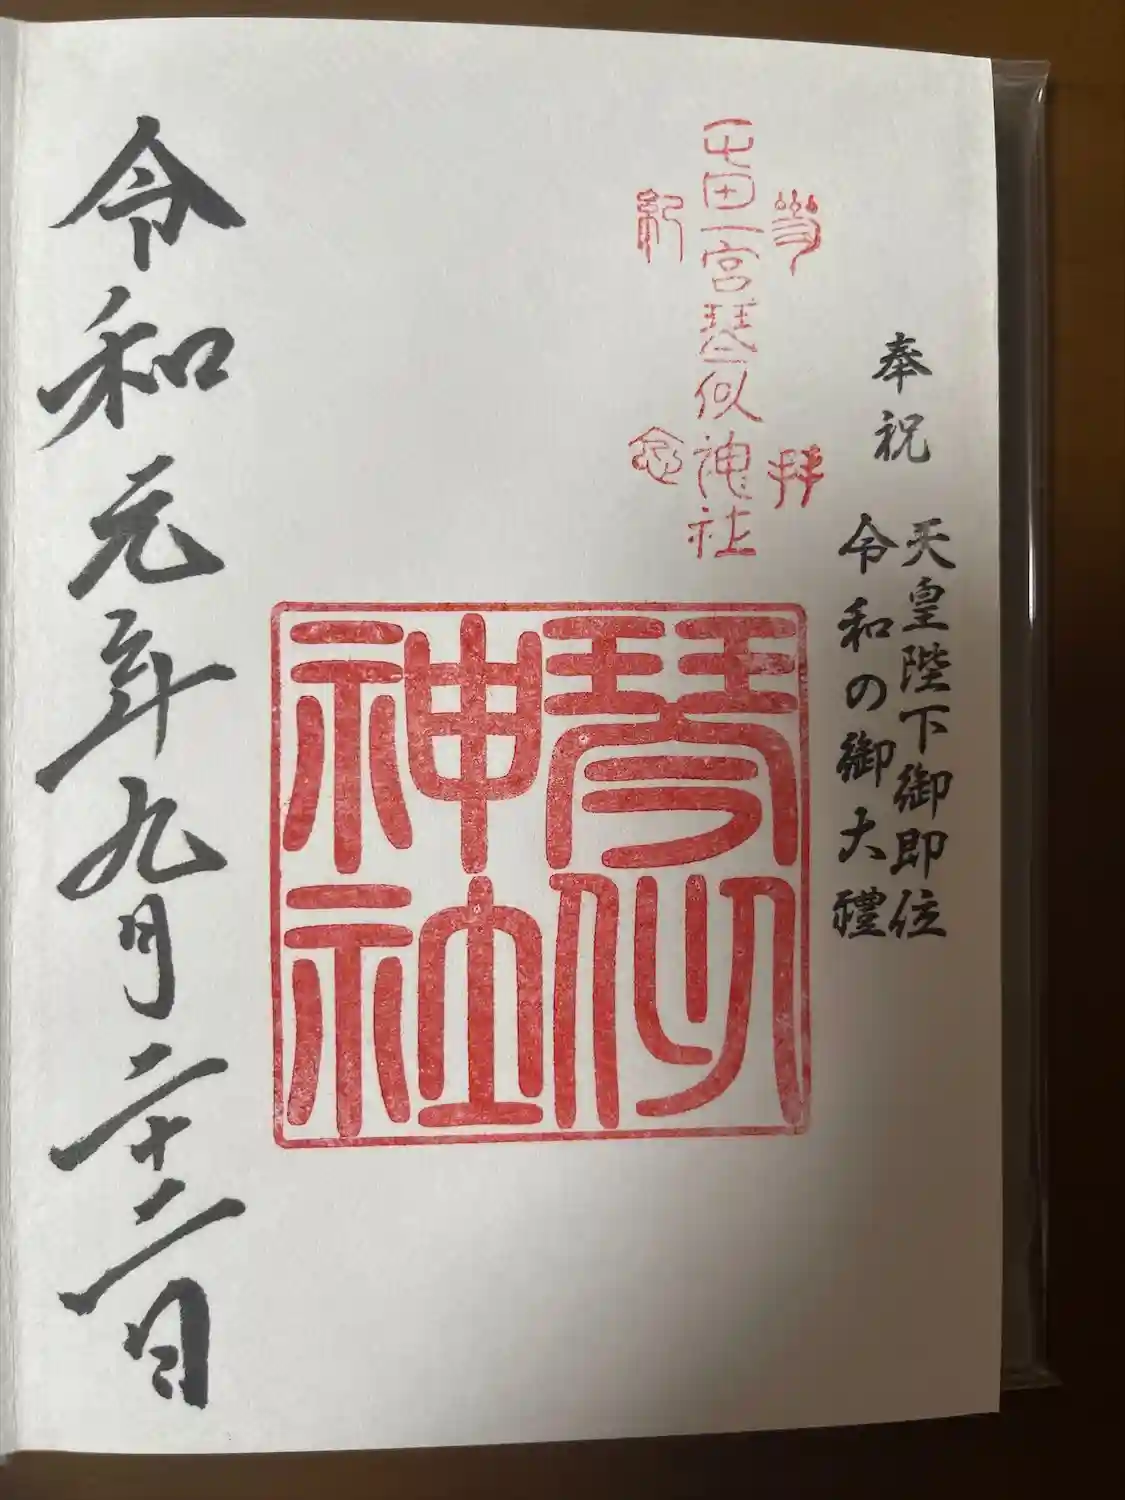 奉祝
天皇陛下御即位
令和の御大禮
参拝
屯田一宮琴似神社
紀念
琴似
神社
令和元年九月二十二日